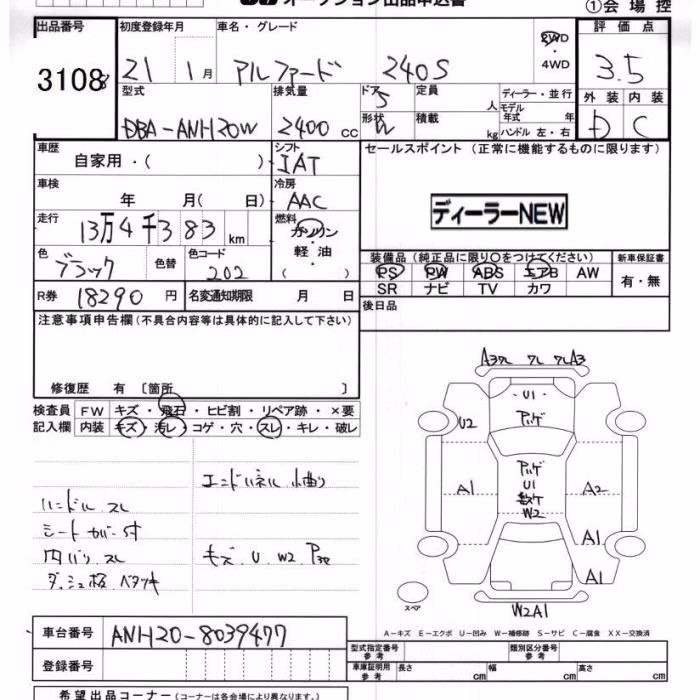 オークション出品申込書
①会場控
出品番号 初度登録年月 車名・グレード 評価点
3108 21 1月 アルファード 240S 2WD・4WD 3.5
型式 排気量 ドア 5 定員 人 ディーラー・並行 外装 内装
モデル年式 年
DBA-ANH20W 2400cc 形状 W 積載 kg ハンドル 左・右 D C
車歴 自家用・( ) シフト IAT セールスポイント(正常に機能するものに限ります)
車検 年 月( 日) 冷房 AAC
ディーラーNEW
走行 13万4千383km 燃料 ガソリン・軽油・( )
色 ブラック 色替 色コード 202
装備品(純正品に限り○をつけてください) 新車保証書
PS PW ABS エアB AW 有・無
SR ナビ TV カワ
R券 18290円 名変通知期限 月 日
後日品
注意事項申告欄(不具合内容等は具体的に記入して下さい)
修復歴 有〔箇所 〕
検査員記入欄 FW キズ・飛石・ヒビ割・リペア跡・×要
内装 キズ・汚レ・コゲ・穴・スレ・キレ・破レ
エンドパネル 小曲り
ハンドル スレ
シートカバー付
内バリ スレ キズ U W2 P
ダッシュ板 ベタツキ
A3 7L 7L A3
U1
U2
U1
A1 A2
W2
A1
A1
スペア
W2A1
A-キズ E-エクボ U-凹み W-補修跡 S-サビ C-腐食 XX-交換済
車台番号 ANH20-8039477
型式指定番号 参考 類別区分番号 参考
登録番号
車庫証明用 参考 長さ cm 幅 cm 高さ cm
希望出品コーナー(コーナーは各会場により異なります。)